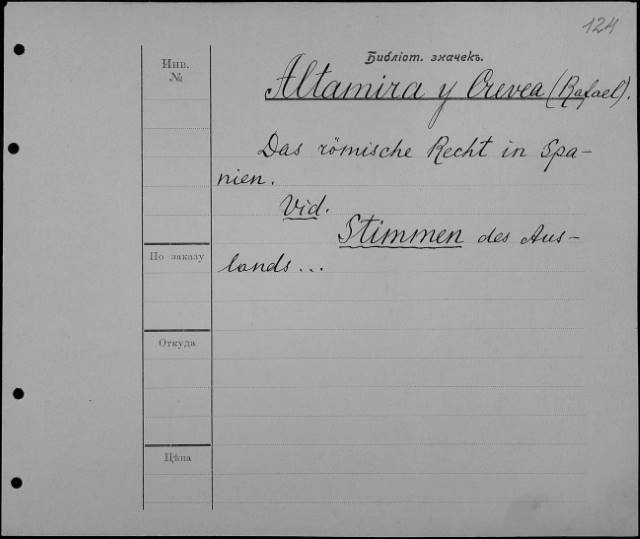 124
Библіот. значекъ.
Инв.
№
Altamira y Crevea (Rafael).
Das römische Recht in Spa-
nien.
Vid.
Stimmen des Aus-
lands...
По заказу
Откуда
Цѣна